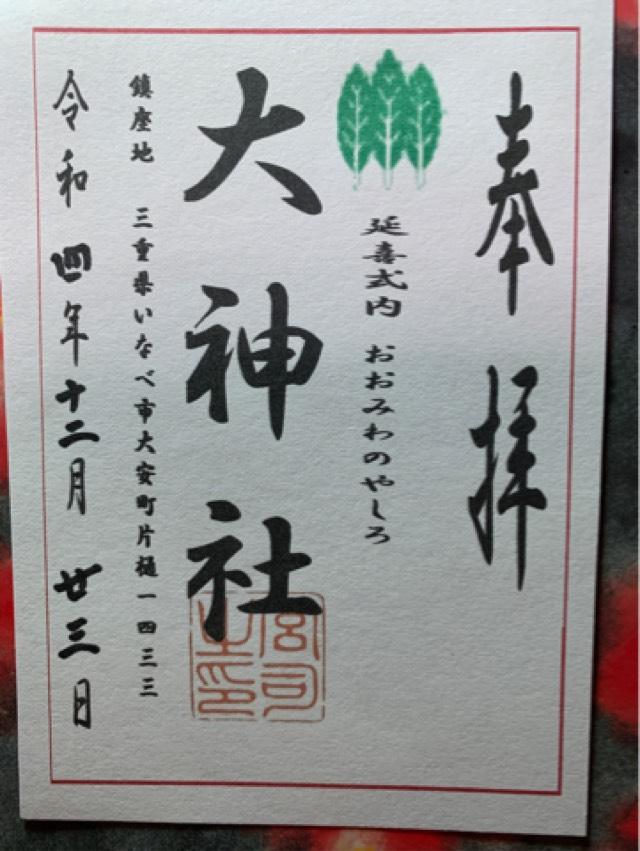 奉拝
延喜式内 おおみわのやしろ
大神社
宮司之印
鎮座地 三重県いなべ市大安町片樋一四三三
令和四年十二月廿三日